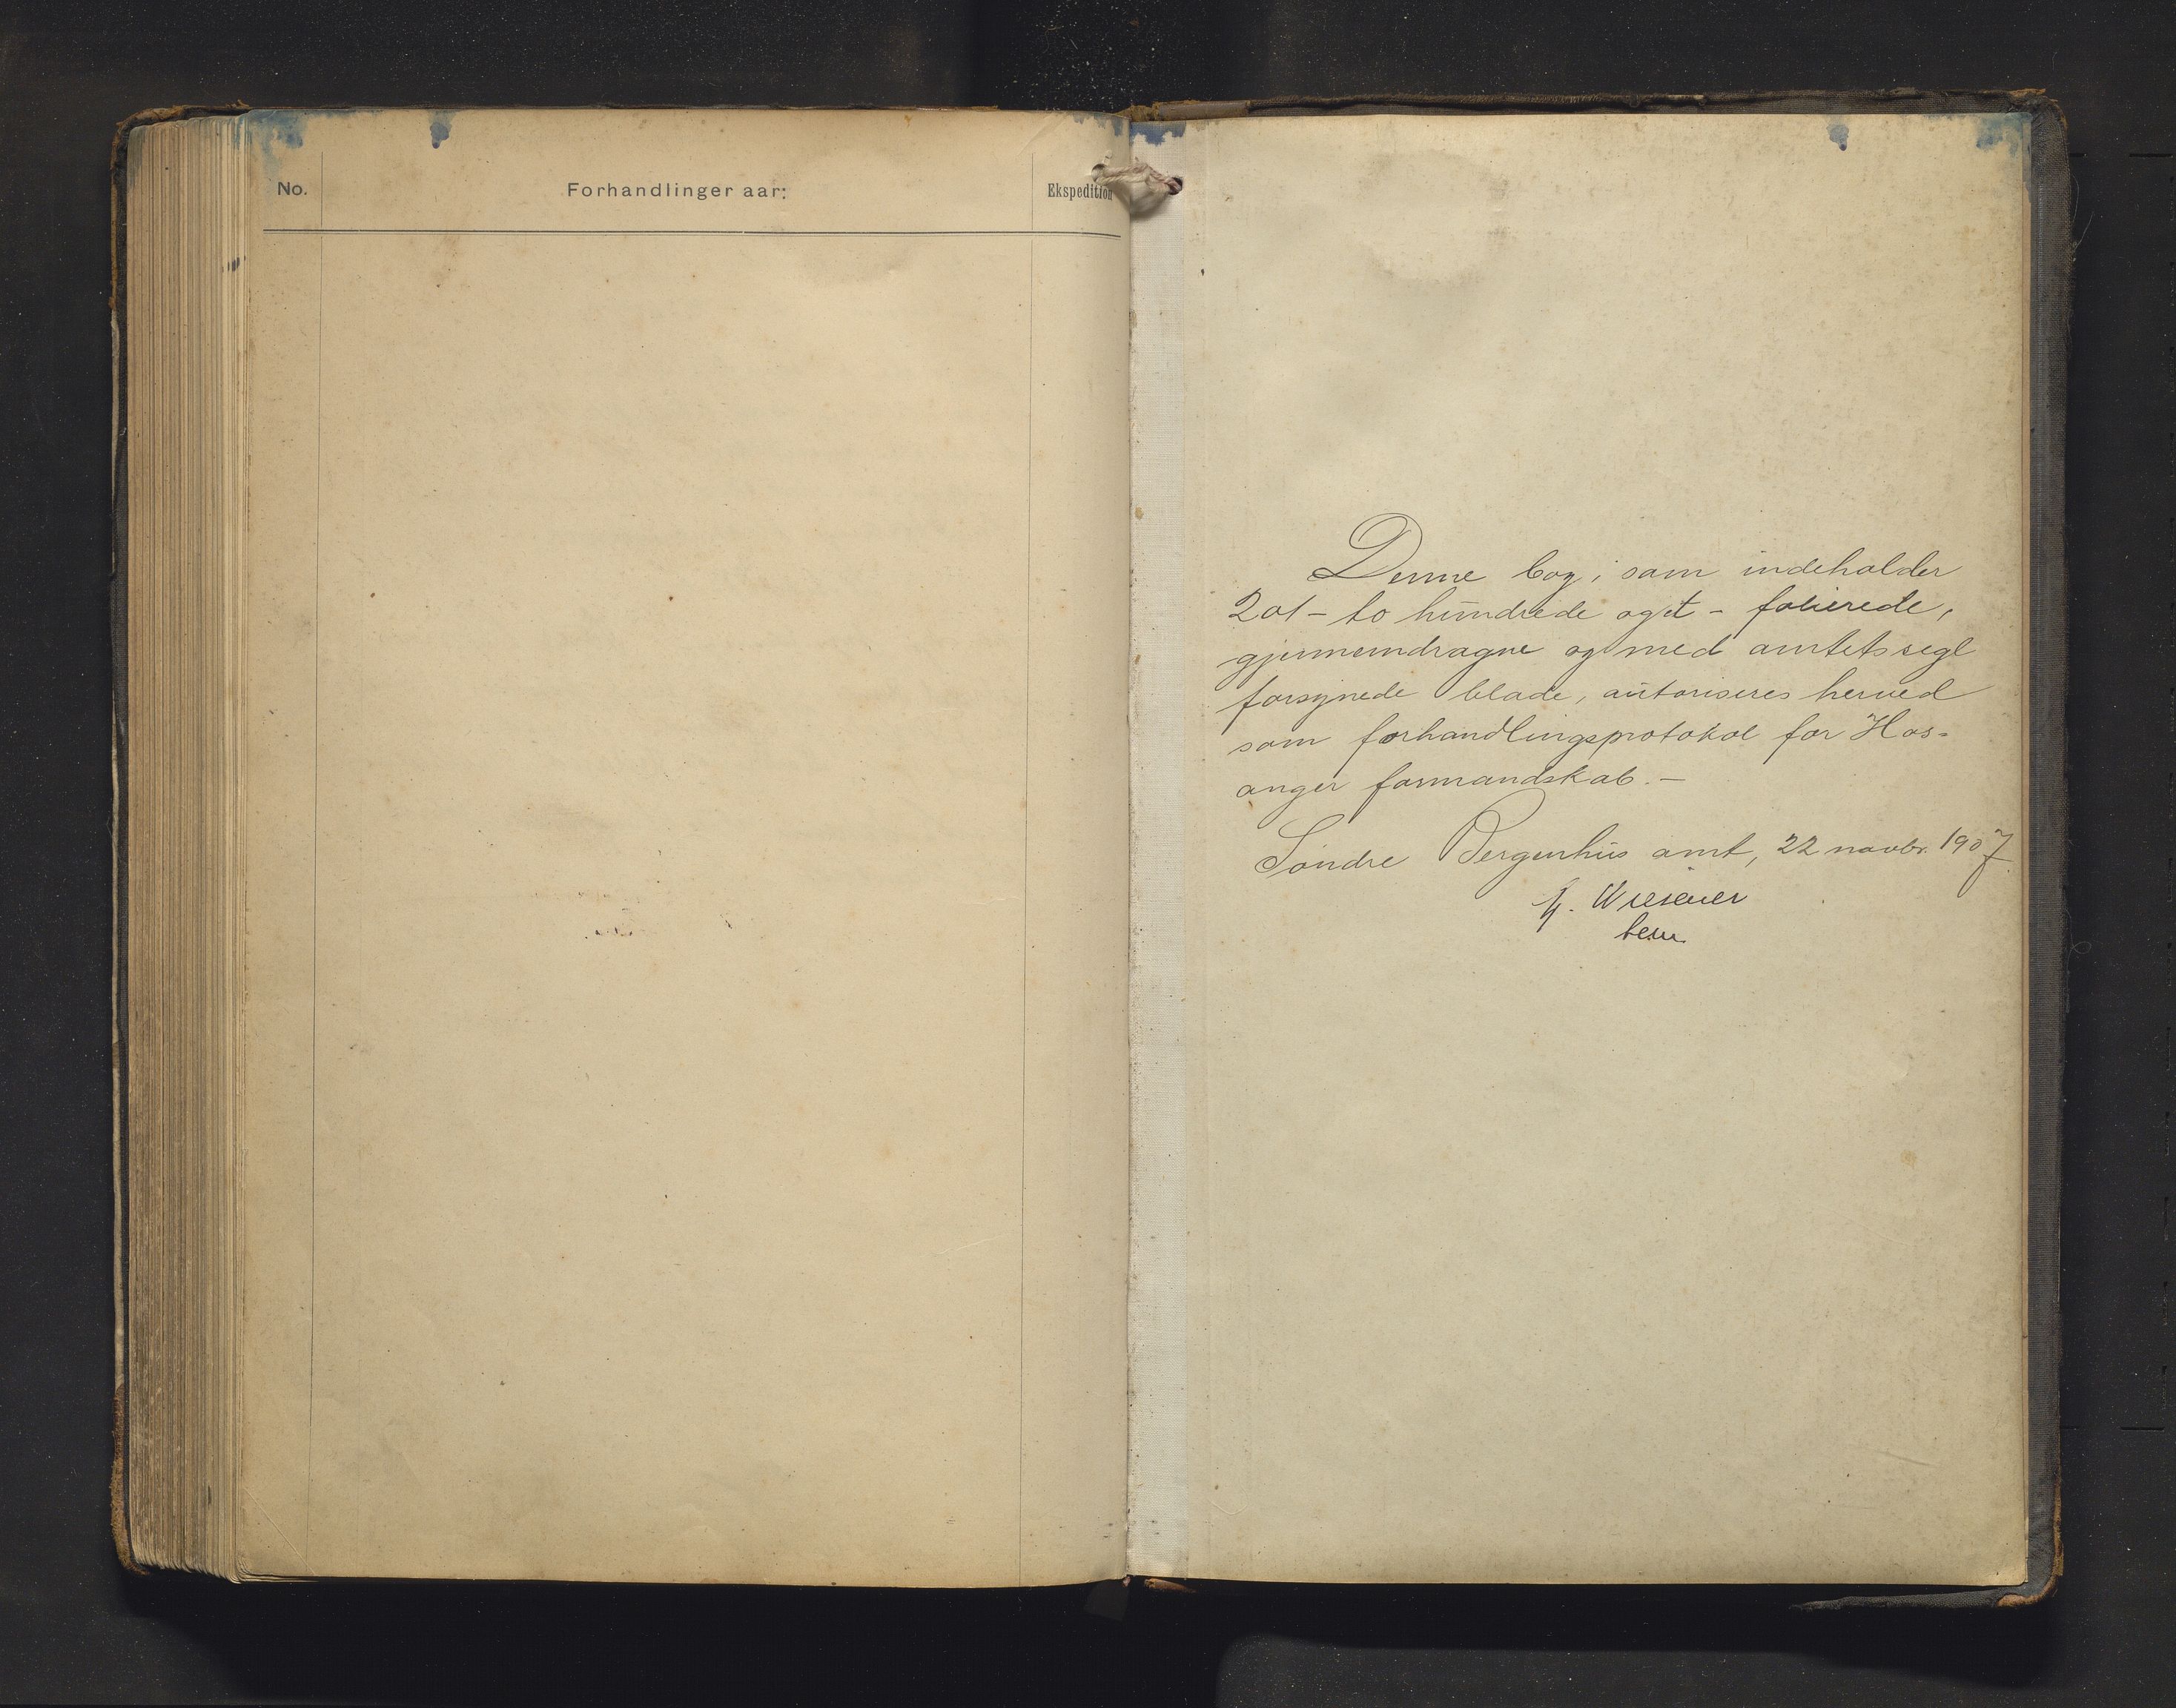 No.
Forhandlinger aar:
Ekspedition
Denne bog, som indeholder
201 - to hundrede og et - folierede,
gjennemdragne og med amtets segl
forsynede blade, autoriseres herved
som forhandlingsprotokol for Hos-
anger formandskab. -
Søndre Bergenhus amt, 22 novbr. 1907.
Wiesener